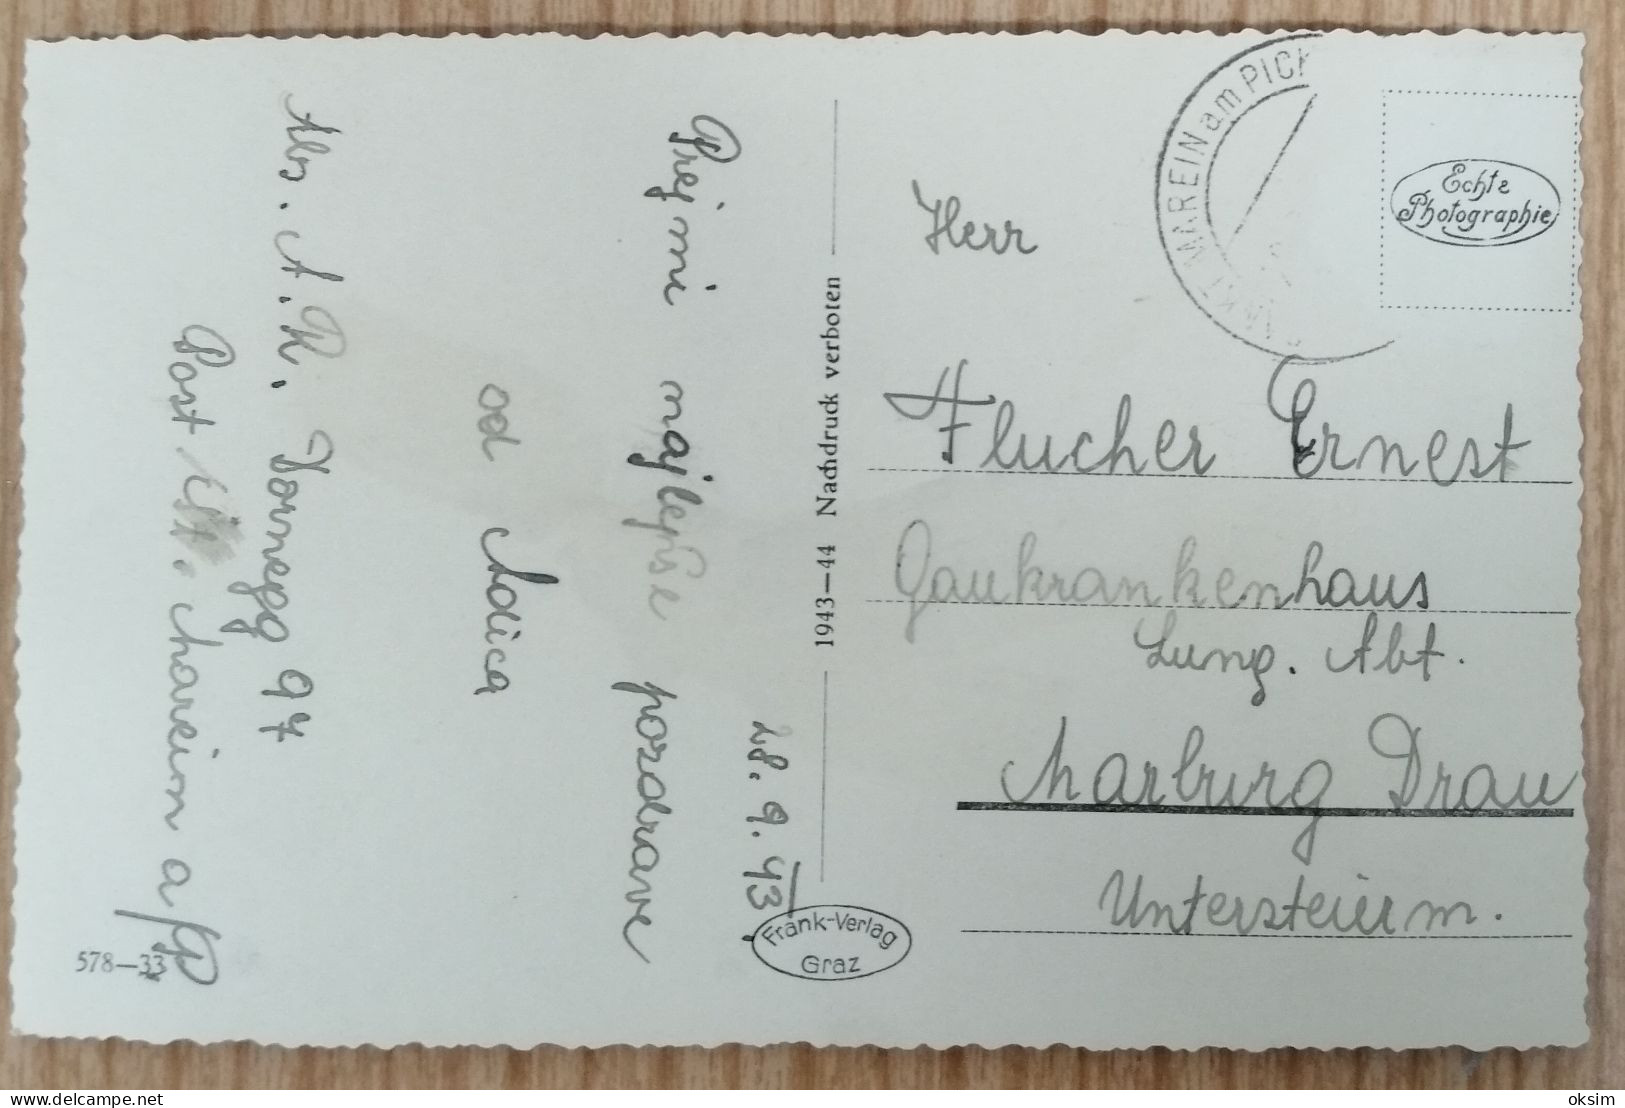 28. 9. 43
Prejmi najlepše pozdrave
od Adica
Abs. A. R. Hornegg 97
Post St. Marein a/P
578—33
1943—44 Nachdruck verboten
Frank-Verlag
Graz
MARKT MAREIN am PICK
Echte
Photographie
Herr
Flucher Ernest
Gaukrankenhaus
Lung. Abt.
Marburg Drau
Untersteierm.
delcampe.net
oksim